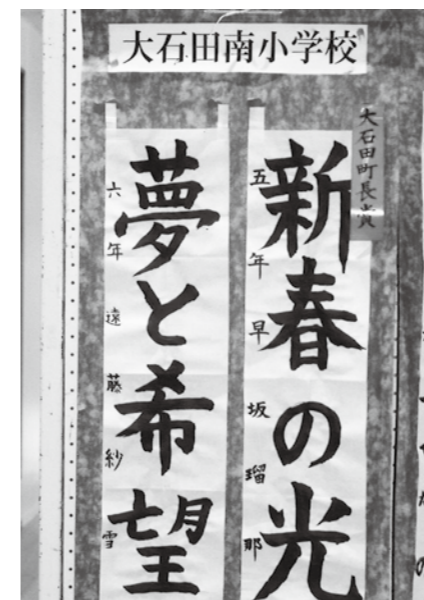 大石田南小学校
大石田町長賞
新春の光
五年早坂瑠那
夢と希望
六年遠藤紗雪